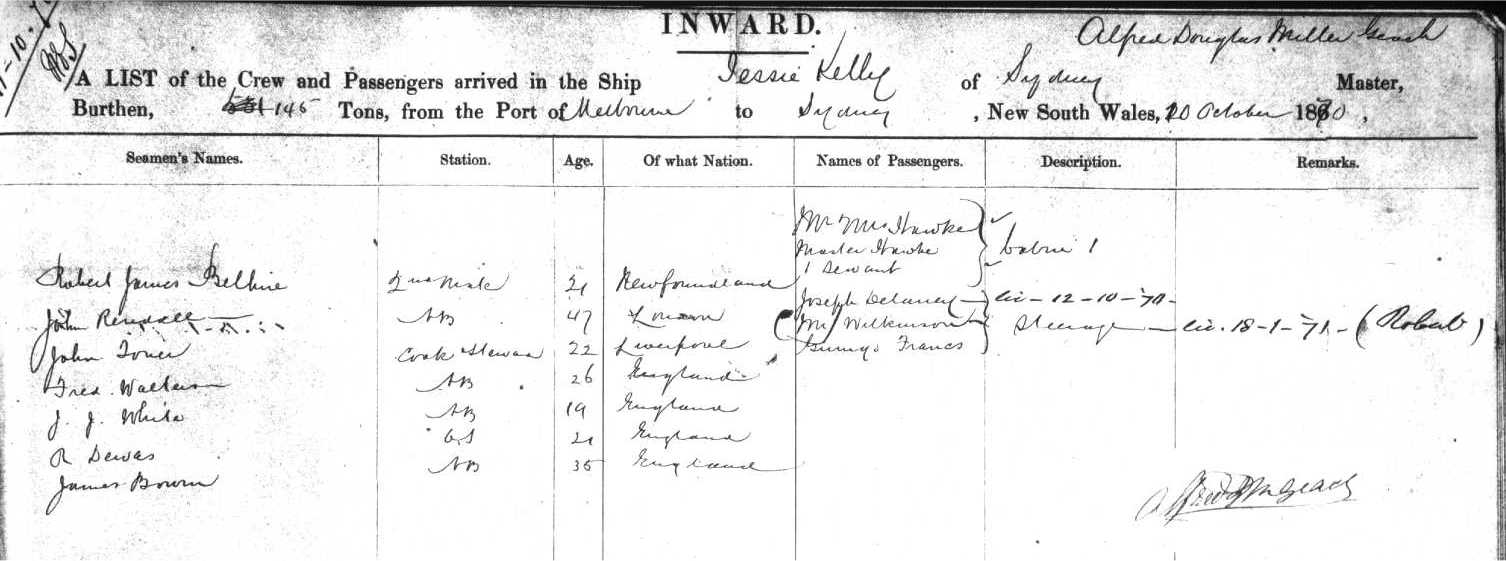 INWARD.
Alfred Douglas Miller Geach
A LIST of the Crew and Passengers arrived in the Ship Jessie Kelly of Sydney Master,
Burthen, 145 Tons, from the Port of Melbourne to Sydney, New South Wales, 20 October 1870,
Seamen's Names. Station. Age. Of what Nation. Names of Passengers. Description. Remarks.
Mr Mrs Hawke
Master Hawke Cabin 1
1 Servant
Robert James Mate 21 Newfoundland
Joseph Delaney
John Rendall AB 47 London
Mr Wilkinson Steerage (Robert)
John Cook Steward 22 Liverpool
Francs
Fred. AB 26 England
J. J. White AB 19 England
R Dewas O.S 21 England
James Bown AB 35 England